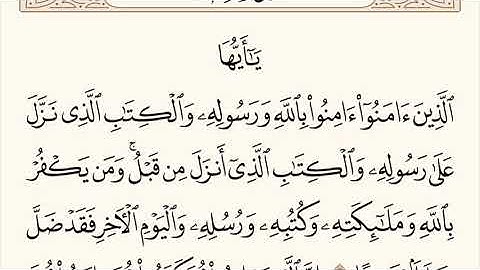 يَٰٓأَيُّهَا
الَّذِينَ ءَامَنُوٓا۟ ءَامِنُوا۟ بِٱللَّهِ وَرَسُولِهِۦ وَٱلْكِتَٰبِ الَّذِى نَزَّلَ
عَلَىٰ رَسُولِهِۦ وَٱلْكِتَٰبِ الَّذِىٓ أَنزَلَ مِن قَبْلُ ۚ وَمَن يَكْفُرْ
بِٱللَّهِ وَمَلَٰٓئِكَتِهِۦ وَكُتُبِهِۦ وَرُسُلِهِۦ وَٱلْيَوْمِ ٱلْءَاخِرِ فَقَدْ ضَلَّ